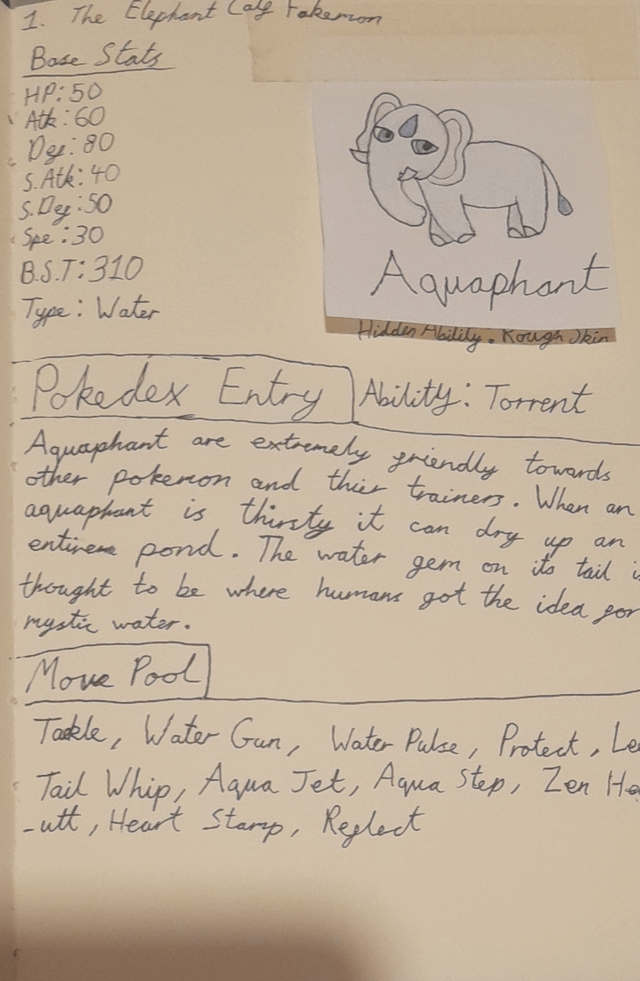 1. The Elephant Calf Fakemon
Base Stats
HP: 50
Atk: 60
Def: 80
S.Atk: 40
S.Def: 50
Spe: 30
B.S.T: 310
Type: Water
Aquaphant
Hidden Ability. Rough Skin
Pokedex Entry
Ability: Torrent
Aquaphant are extremely friendly towards
other pokemon and their trainers. When an
aquaphant is thirsty it can dry up an
entire pond. The water gem on its tail is
thought to be where humans got the idea for
mystic water.
Move Pool
Tackle, Water Gun, Water Pulse, Protect, Le
Tail Whip, Aqua Jet, Aqua Step, Zen He
-utt, Heart Stamp, Reflect